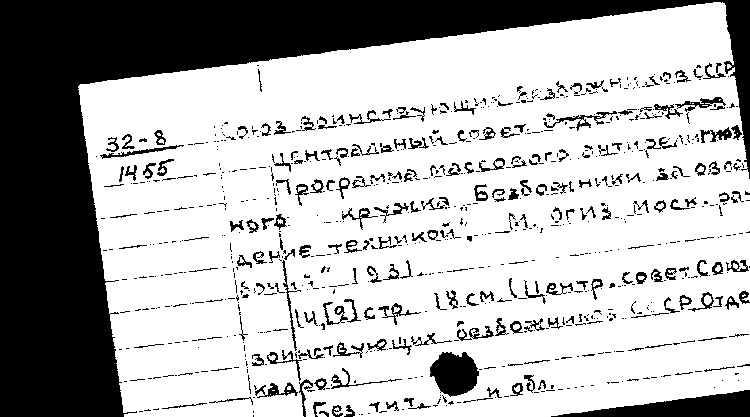 32-8
1455
Союз воинствующих безбожников СССР
Центральный совет. Отдел кадров.
Программа массового антирелигиоз
ного кружка „Безбожники за овла
дение техникой". М., ОГИЗ. Моск. ра
бочий", 1931.
14,[2] стр. 18 см. (Центр. совет Союз
воинствующих безбожников СССР. Отде
кадров).
Без тит. л. и обл.